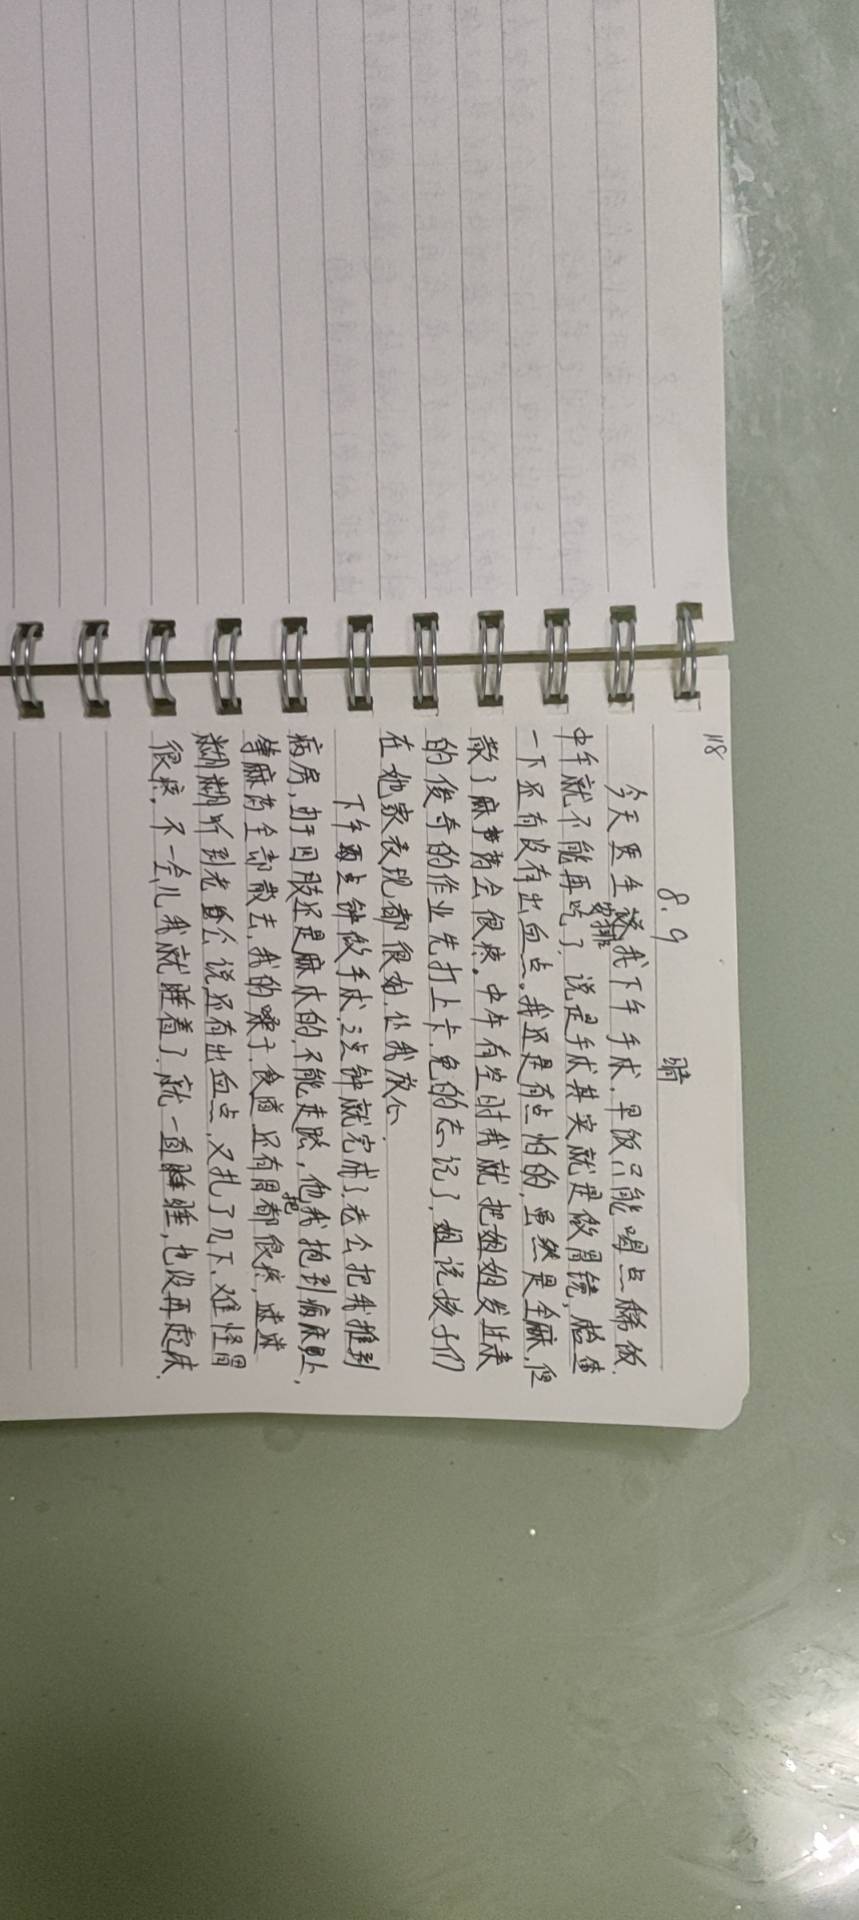 118
8.9 晴
今天医生安排我下午手术.早饭只能喝点稀饭.
中午就不能再吃了,说是手术其实就是做胃镜,检查
一下还有没有出血点。我还是有点怕的,虽然是全麻,但
散了麻药会很疼。中午有空时我就把姐姐发过来
的俊奇的作业先打上卡,免的忘记了,姐说孩子们
在她家表现都很好.让我放心.
下午两点钟做手术,3点钟就完成了,老公把我推到
病房,由于四肢还是麻木的,不能走路,他把我抱到病床上,
等麻药全部散去,我的嗓子.食道还有胃都很疼,迷迷
糊糊听到老公说还有出血点,又扎了几下,难怪胃
很疼.不一会儿我就睡着了.就一直睡睡,也没再起床.